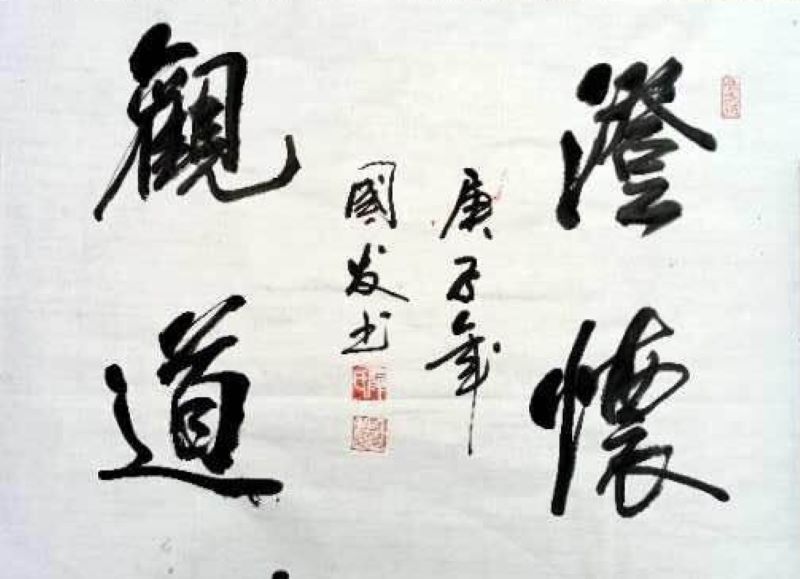 澄懷
觀道
庚子年
國发书